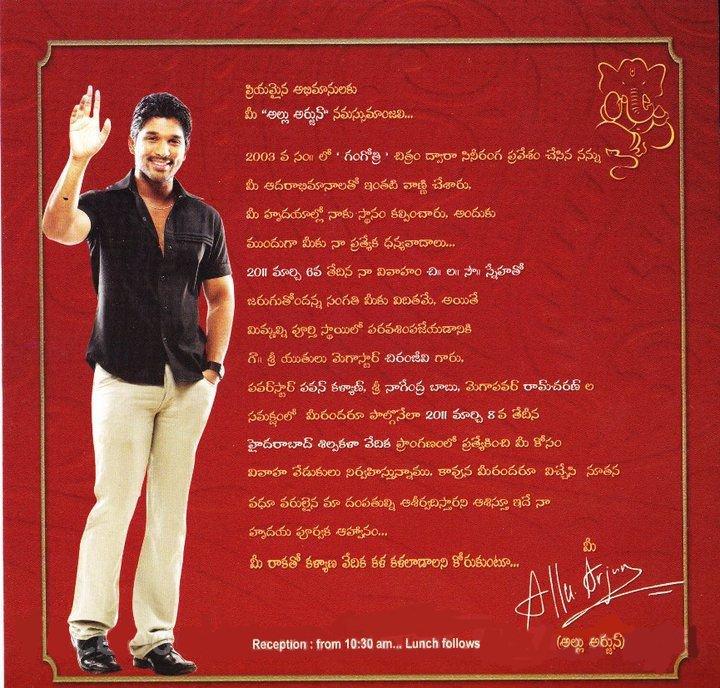 ప్రియమైన అభిమానులకు
మీ "అల్లు అర్జున్" నమస్సుమాంజలి...
2003 వ సం॥ లో ' గంగోత్రి ' చిత్రం ద్వారా సినీరంగ ప్రవేశం చేసిన నన్ను
మీ ఆదరాభిమానాలతో ఇంతటి వాణ్ణి చేశారు,
మీ హృదయాల్లో నాకు స్థానం కల్పించారు, అందుకు
ముందుగా మీకు నా ప్రత్యేక ధన్యవాదాలు...
2011 మార్చి 6వ తేదిన నా వివాహం చి॥ ల॥ సౌ॥ స్నేహతో
జరుగుతోందన్న సంగతి మీకు విదితమే, అయితే
మిమ్మల్ని పూర్తి స్థాయిలో పరవశింపజేయడానికి
గౌ॥ శ్రీ యుతులు మెగాస్టార్ చిరంజీవి గారు,
పవర్‌స్టార్ పవన్ కళ్యాణ్, శ్రీ నాగేంద్ర బాబు, మెగాపవర్ రామ్‌చరణ్ ల
సమక్షంలో మీరందరూ పాల్గొనేలా 2011 మార్చి 8 వ తేదీన
హైదరాబాద్ శిల్పకళా వేదిక ప్రాంగణంలో ప్రత్యేకించి మీ కోసం
వివాహ వేడుకలు నిర్వహిస్తున్నాము. కావున మీరందరూ విచ్చేసి నూతన
వధూ వరులైన మా దంపతుల్ని ఆశీర్వదిస్తారని ఆశిస్తూ ఇదే నా
హృదయ పూర్వక ఆహ్వానం...
మీ రాకతో కళ్యాణ వేదిక కళ కళలాడాలని కోరుకుంటూ...
మీ
Allu Arjun
(అల్లు అర్జున్)
Reception : from 10:30 am... Lunch follows